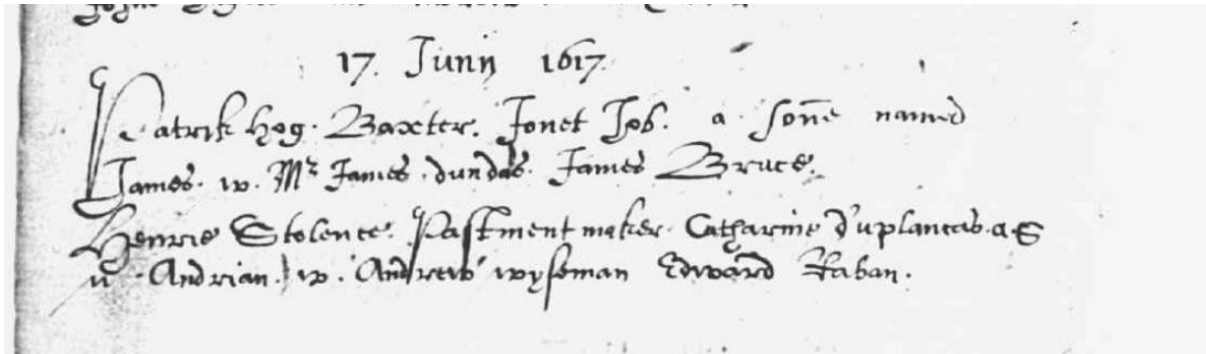 17. Junij 1617.
Patrik Hog. Baxter. Jonet Job. a. sone named
James. w. Mr James. dundas. James Bruce.
Henrie Stolence. Pastment maker. Catharine d'uplancas. a S
n. Andrian. w. Andrew wyseman Edward Raban.